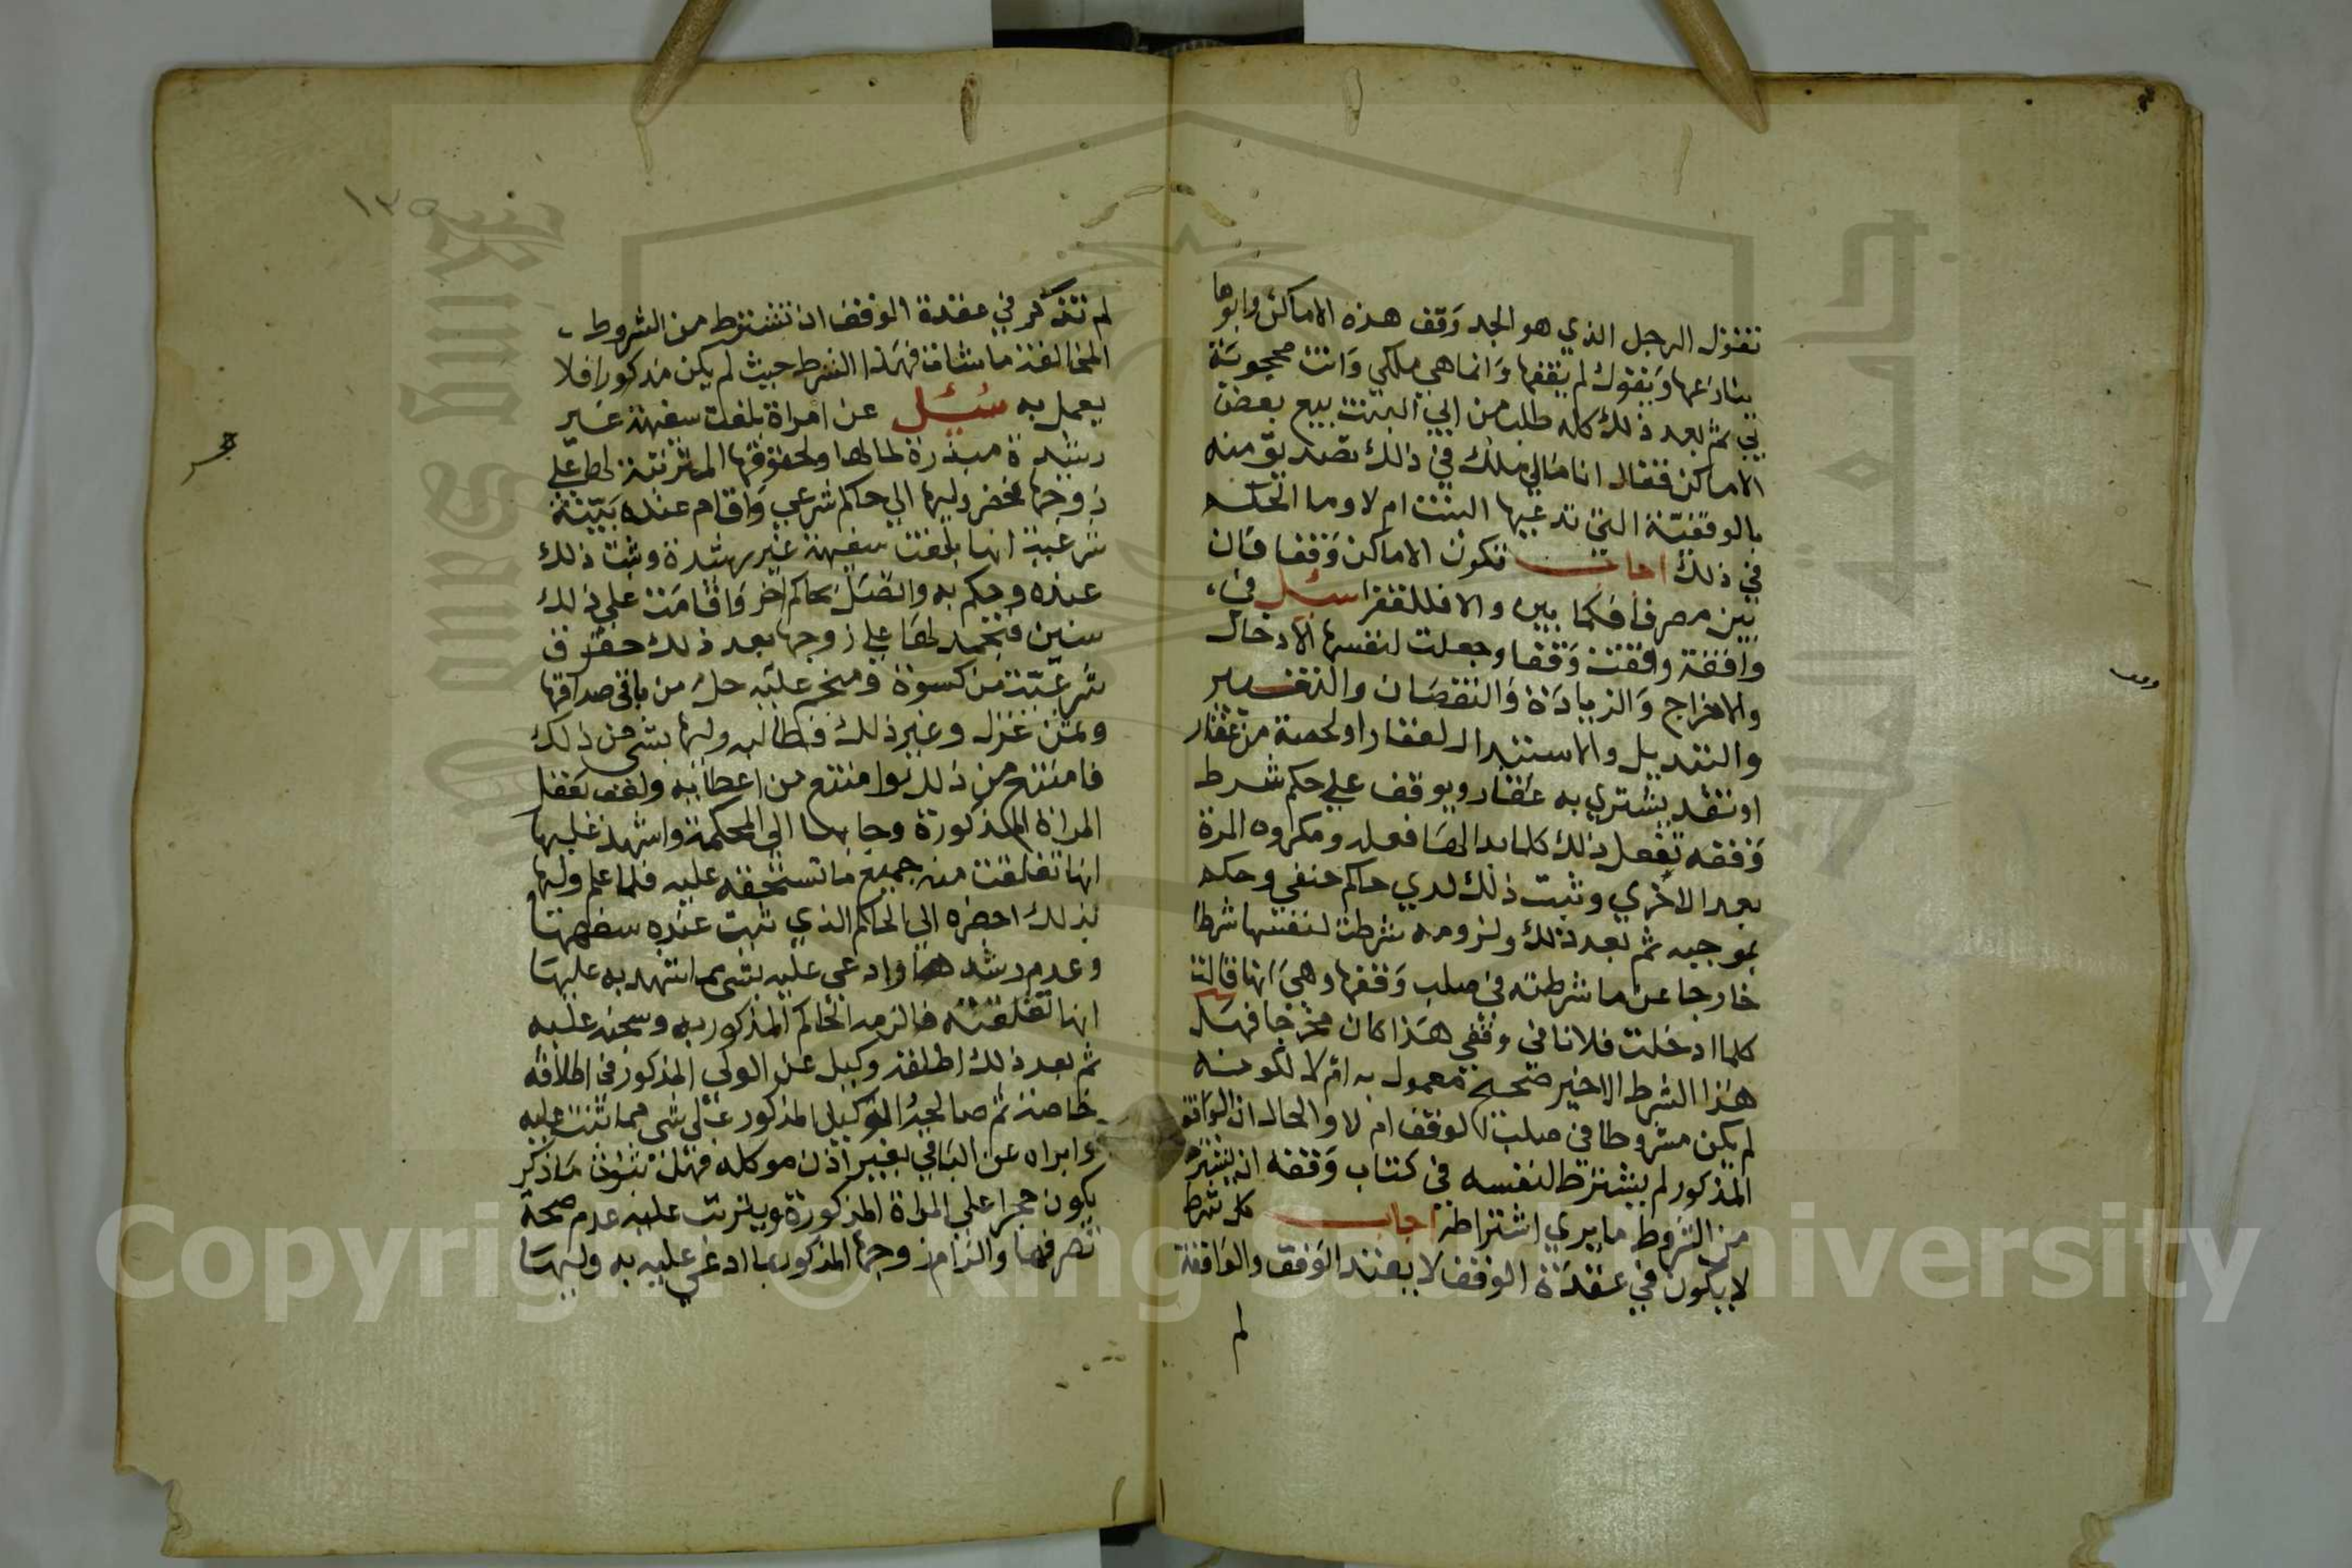 تقول الرجل الذي هو الجد وقف هذه الاماكن وابوها
ينازعها ويقول لم يقفها وانما هي ملكي وانت محجوبة
بي ثم بعد ذلك كله طلب من ابي البنت بيع بعض
الاماكن فقال انا مالي ملك في ذلك تصديق منه
بالوقفية التي تدعيها البنت ام لا وما الحكم
في ذلك اجاب تكون الاماكن وقفا فان
بين مصرفا فكما بين والا فللفقرا سئل في
واقفة وقفت وقفا وجعلت لنفسها الادخال
والاخراج والزيادة والنقصان والتغيير
والتبديل والاستبدال لعقار او لحصة من عقار
او نقد يشتري به عقار ويوقف علي حكم شرط
وقفه تفعل ذلك كلما بدا لها فعله ومكروه المرة
بعد الاخري وثبت ذلك لدي حاكم حنفي وحكم
بموجبه ثم بعد ذلك ولزومه شرطت لنفسها شرطا
خارجا عن ما شرطته في صلب وقفها وهي انها قالت
كلما ادخلت فلانا في وقفي هذا كان مخرجا فهل
هذا الشرط الاخير صحيح معمول به ام لا لكونه
لم يكن مشروطا في صلب الوقف ام لا والحال ان الواقف
المذكور لم يشترط لنفسه في كتاب وقفه ان يشترط
من الشروط ما يري اشتراطه اجاب كل شرط
لا يكون في عقدة الوقف لا يعتد الوقف والواقفة
لم
وقف
١٣٥
لم تذكر في عقدة الوقف ان تشترط من الشروط
المخالفة ما شات فهذا الشرط حيث لم يكن مذكورا فلا
يعمل به سئل عن امراة بلغت سفيهة غير
رشيدة مبذرة لمالها ولحقوقها المترتبة لها علي
زوجها فحضر وليها الي حاكم شرعي واقام عنده بينة
شرعية انها بلغت سفيهة غير رشيدة وثبت ذلك
عنده وحكم به واتصل بحاكم اخر واقامت علي ذلك
سنين فتجمد لها علي زوجها بعد ذلك حقوق
شرعية من كسوة ومنجم عليه حل من باقي صداقها
وثمن غزل وغير ذلك فطالبه وليها بشي من ذلك
فامتنع من ذلك وامتنع من اعطائه ولفف بعقل
المراة المذكورة وجابها الي المحكمة واشهد عليها
انها تغلقت منه جميع ما تستحقه عليه فلما علم وليها
بذلك احضره الي الحاكم الذي ثبت عنده سفهها
وعدم رشدها وادعي عليه بشي مما اشهد به عليها
انها تغلقته فالزمه الحاكم المذكور به وسجنه عليه
ثم بعد ذلك اطلقه وكيل عن الولي المذكور في اطلاقه
خاصة ثم صالحه الوكيل المذكور علي شي مما ثبت عليه
وابراه عن الباقي بغير اذن موكله فهل ثبوت ما ذكر
يكون حجرا علي المراة المذكورة ويترتب عليه عدم صحة
تصرفها والزام زوجها المذكور بما ادعي عليه به وليها
حجر
Copyright © King Saud University